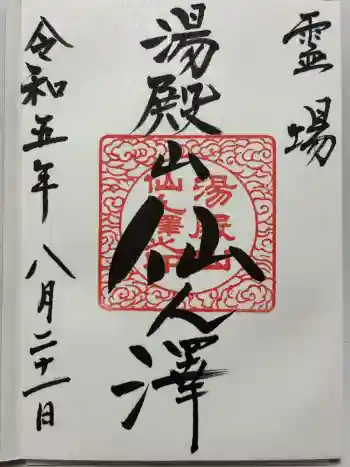 霊場
湯殿山仙人澤
湯殿山
仙人澤
令和五年 八月二十一日